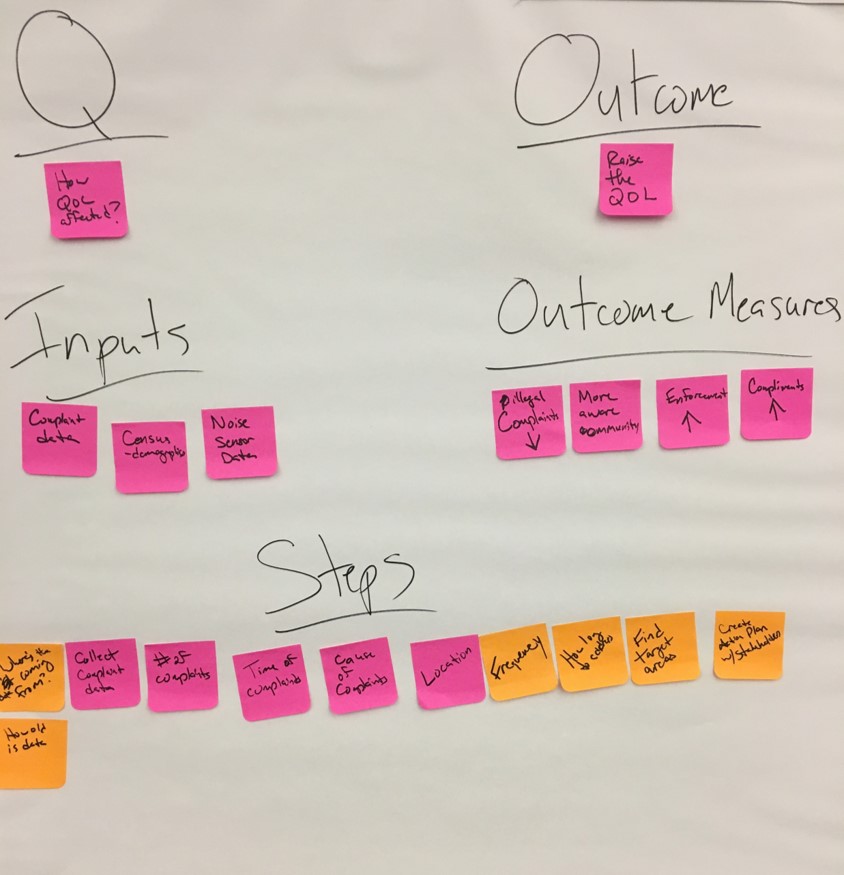 Q
How
QOL
affected?
Outcome
Raise
the
QOL
Inputs
Complaint
data
Census
-demographics
Noise
Sensor
Data
Outcome Measures
illegal
Complaints
↓
More
aware
community
Enforcement
↑
Compliments
↑
Steps
Where's the
coming
from?
Collect
Complaint
data
# of
complaints
Time of
complaints
Cause
of
Complaints
Location
Frequency
How long
Find
target
areas
Create
Action Plan
w/stakeholders
How old
is data